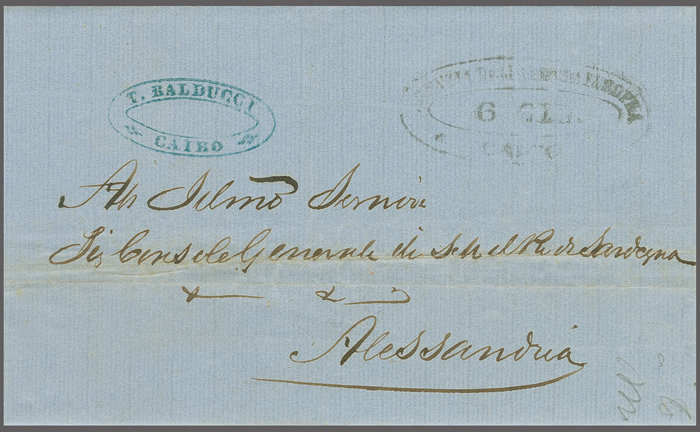 T. BALDUCCI
CAIRO
POSTA EUROPEA
6 GIU.
CAIRO
All' Illmo Signore
Sig Console Generale di S. M. il Re di Sardegna
&
Alessandria